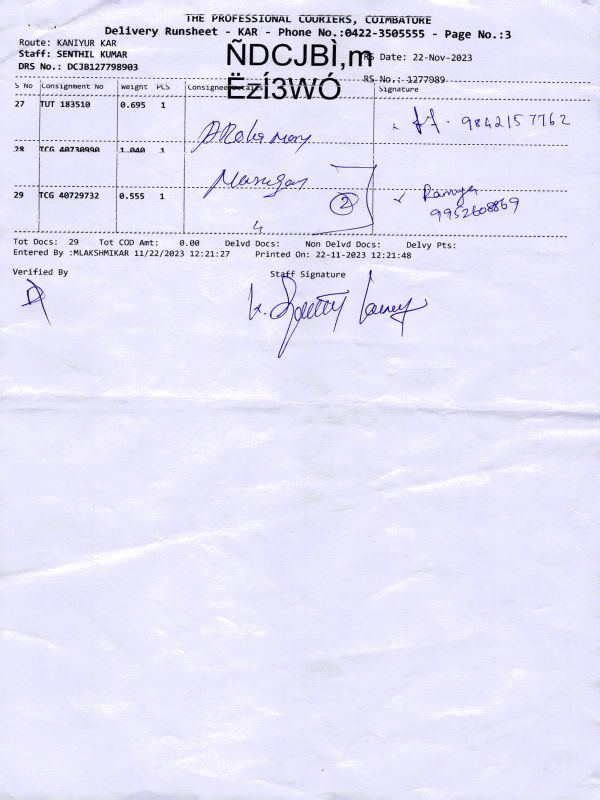 THE PROFESSIONAL COURIERS, COIMBATORE
Delivery Runsheet - KAR - Phone No.:0422-3505555 - Page No.:3
Route: KANIYUR KAR
Staff: SENTHIL KUMAR
RS Date: 22-Nov-2023
DRS No.: DCJB127798903
ÑDCJBÌ,m
Ëzí3WÓ
RS No.: 1277989
S No Consignment No Weight PCS Consignee Details Signature
27 TUT 183510 0.695 1
9842157762
28 TCG 40730990 1.040 1
Murugan
29 TCG 40729732 0.555 1
2
9952608869
4
Tot Docs: 29 Tot COD Amt: 0.00 Delvd Docs: Non Delvd Docs: Delvy Pts:
Entered By :MLAKSHMIKAR 11/22/2023 12:21:27 Printed On: 22-11-2023 12:21:48
Verified By Staff Signature